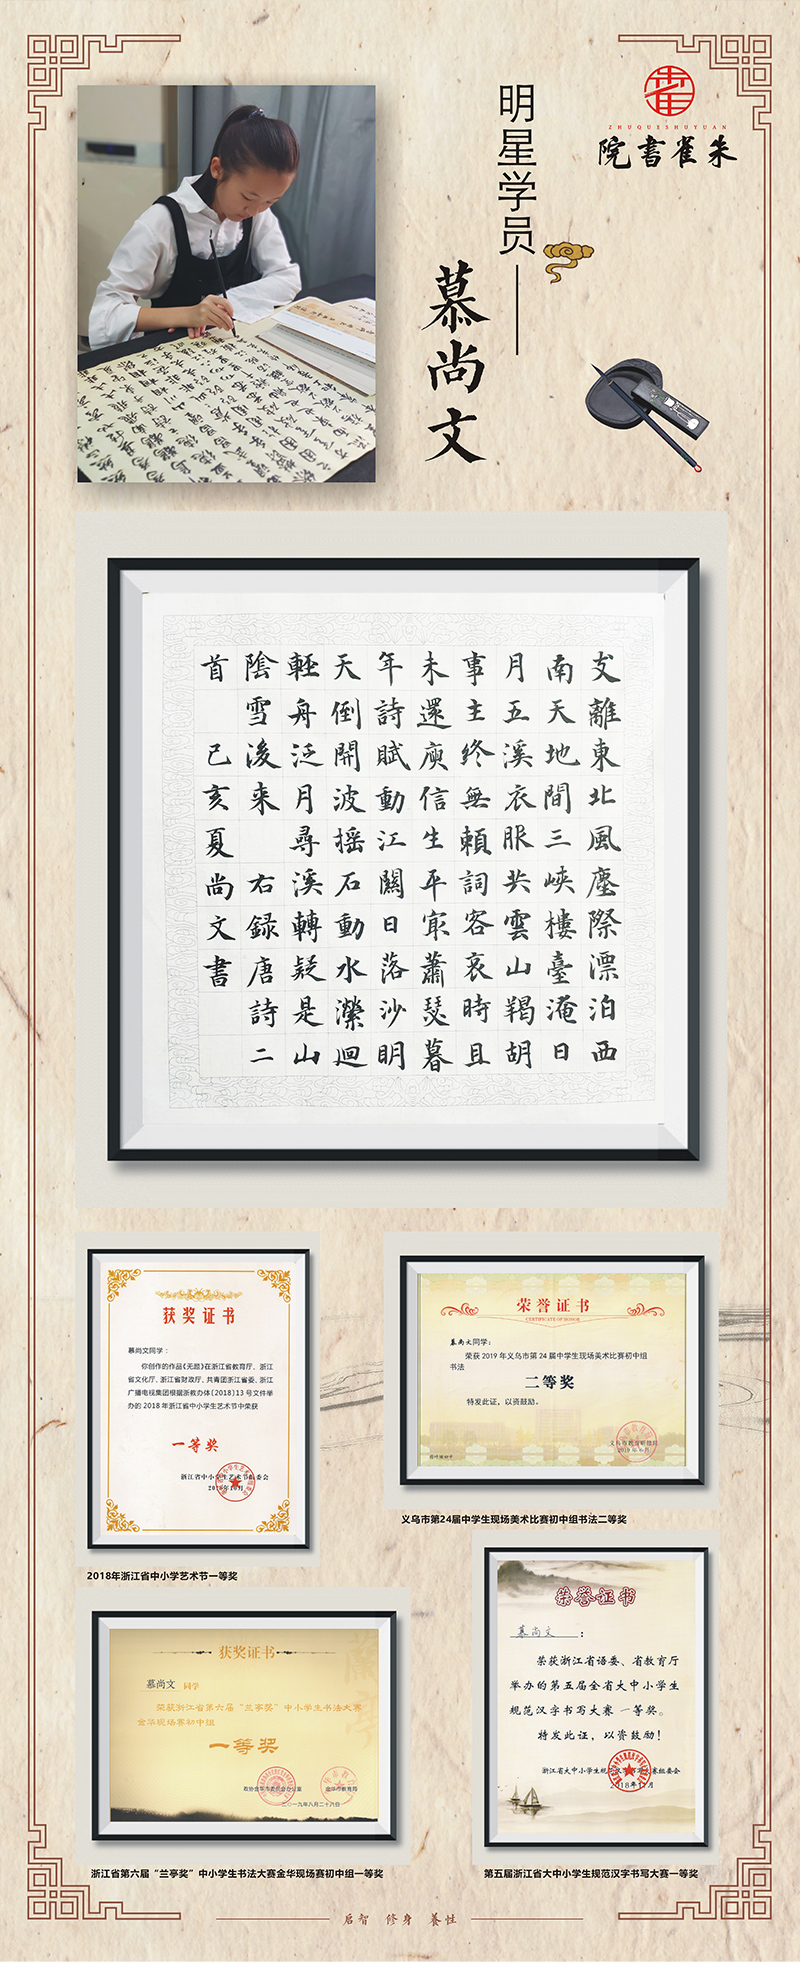 ZHUQUESHUYUAN
朱雀書院
明星学员——
慕尚文
支離東北風塵際漂泊西
南天地間三峽樓臺淹日
月五溪衣服共雲山羯胡
事主終無頼詞客哀時且
未還庾信生平冣蕭瑟暮
年詩賦動江關日落沙明
天倒開波摇石動水瀠迴
輕舟泛月尋溪轉疑是山
陰雪後来 右録唐詩二
首 己亥夏尚文書
获奖证书
慕尚文同学：
你创作的作品《无题》在浙江省教育厅、浙江
省文化厅、浙江省财政厅、共青团浙江省委、浙江
广播电视集团根据浙教办体〔2018〕13 号文件举
办的 2018 年浙江省中小学生艺术节中荣获
一等奖
浙江省中小学生艺术节组委会
2018年10月
2018年浙江省中小学艺术节一等奖
荣誉证书
CERTIFICATE OF HONOR
慕尚文同学：
荣获 2019 年义乌市第 24 届中学生现场美术比赛初中组
书法
二等奖
特发此证，以资鼓励。
义乌市教育研修院
2019 年 6 月
义乌市第24届中学生现场美术比赛初中组书法二等奖
获奖证书
慕尚文 同学
荣获浙江省第六届“兰亭奖”中小学生书法大赛
金华现场赛初中组
一等奖
政协金华市委员会办公室 金华市教育局
二〇一九年八月二十八日
浙江省第六届“兰亭奖”中小学生书法大赛金华现场赛初中组一等奖
荣誉证书
慕尚文：
荣获浙江省语委、省教育厅
举办的第五届全省大中小学生
规范汉字书写大赛 一等奖。
特发此证，以资鼓励！
浙江省大中小学生规范汉字书写大赛组委会
2018年11月
第五届浙江省大中小学生规范汉字书写大赛一等奖
启智 修身 養性